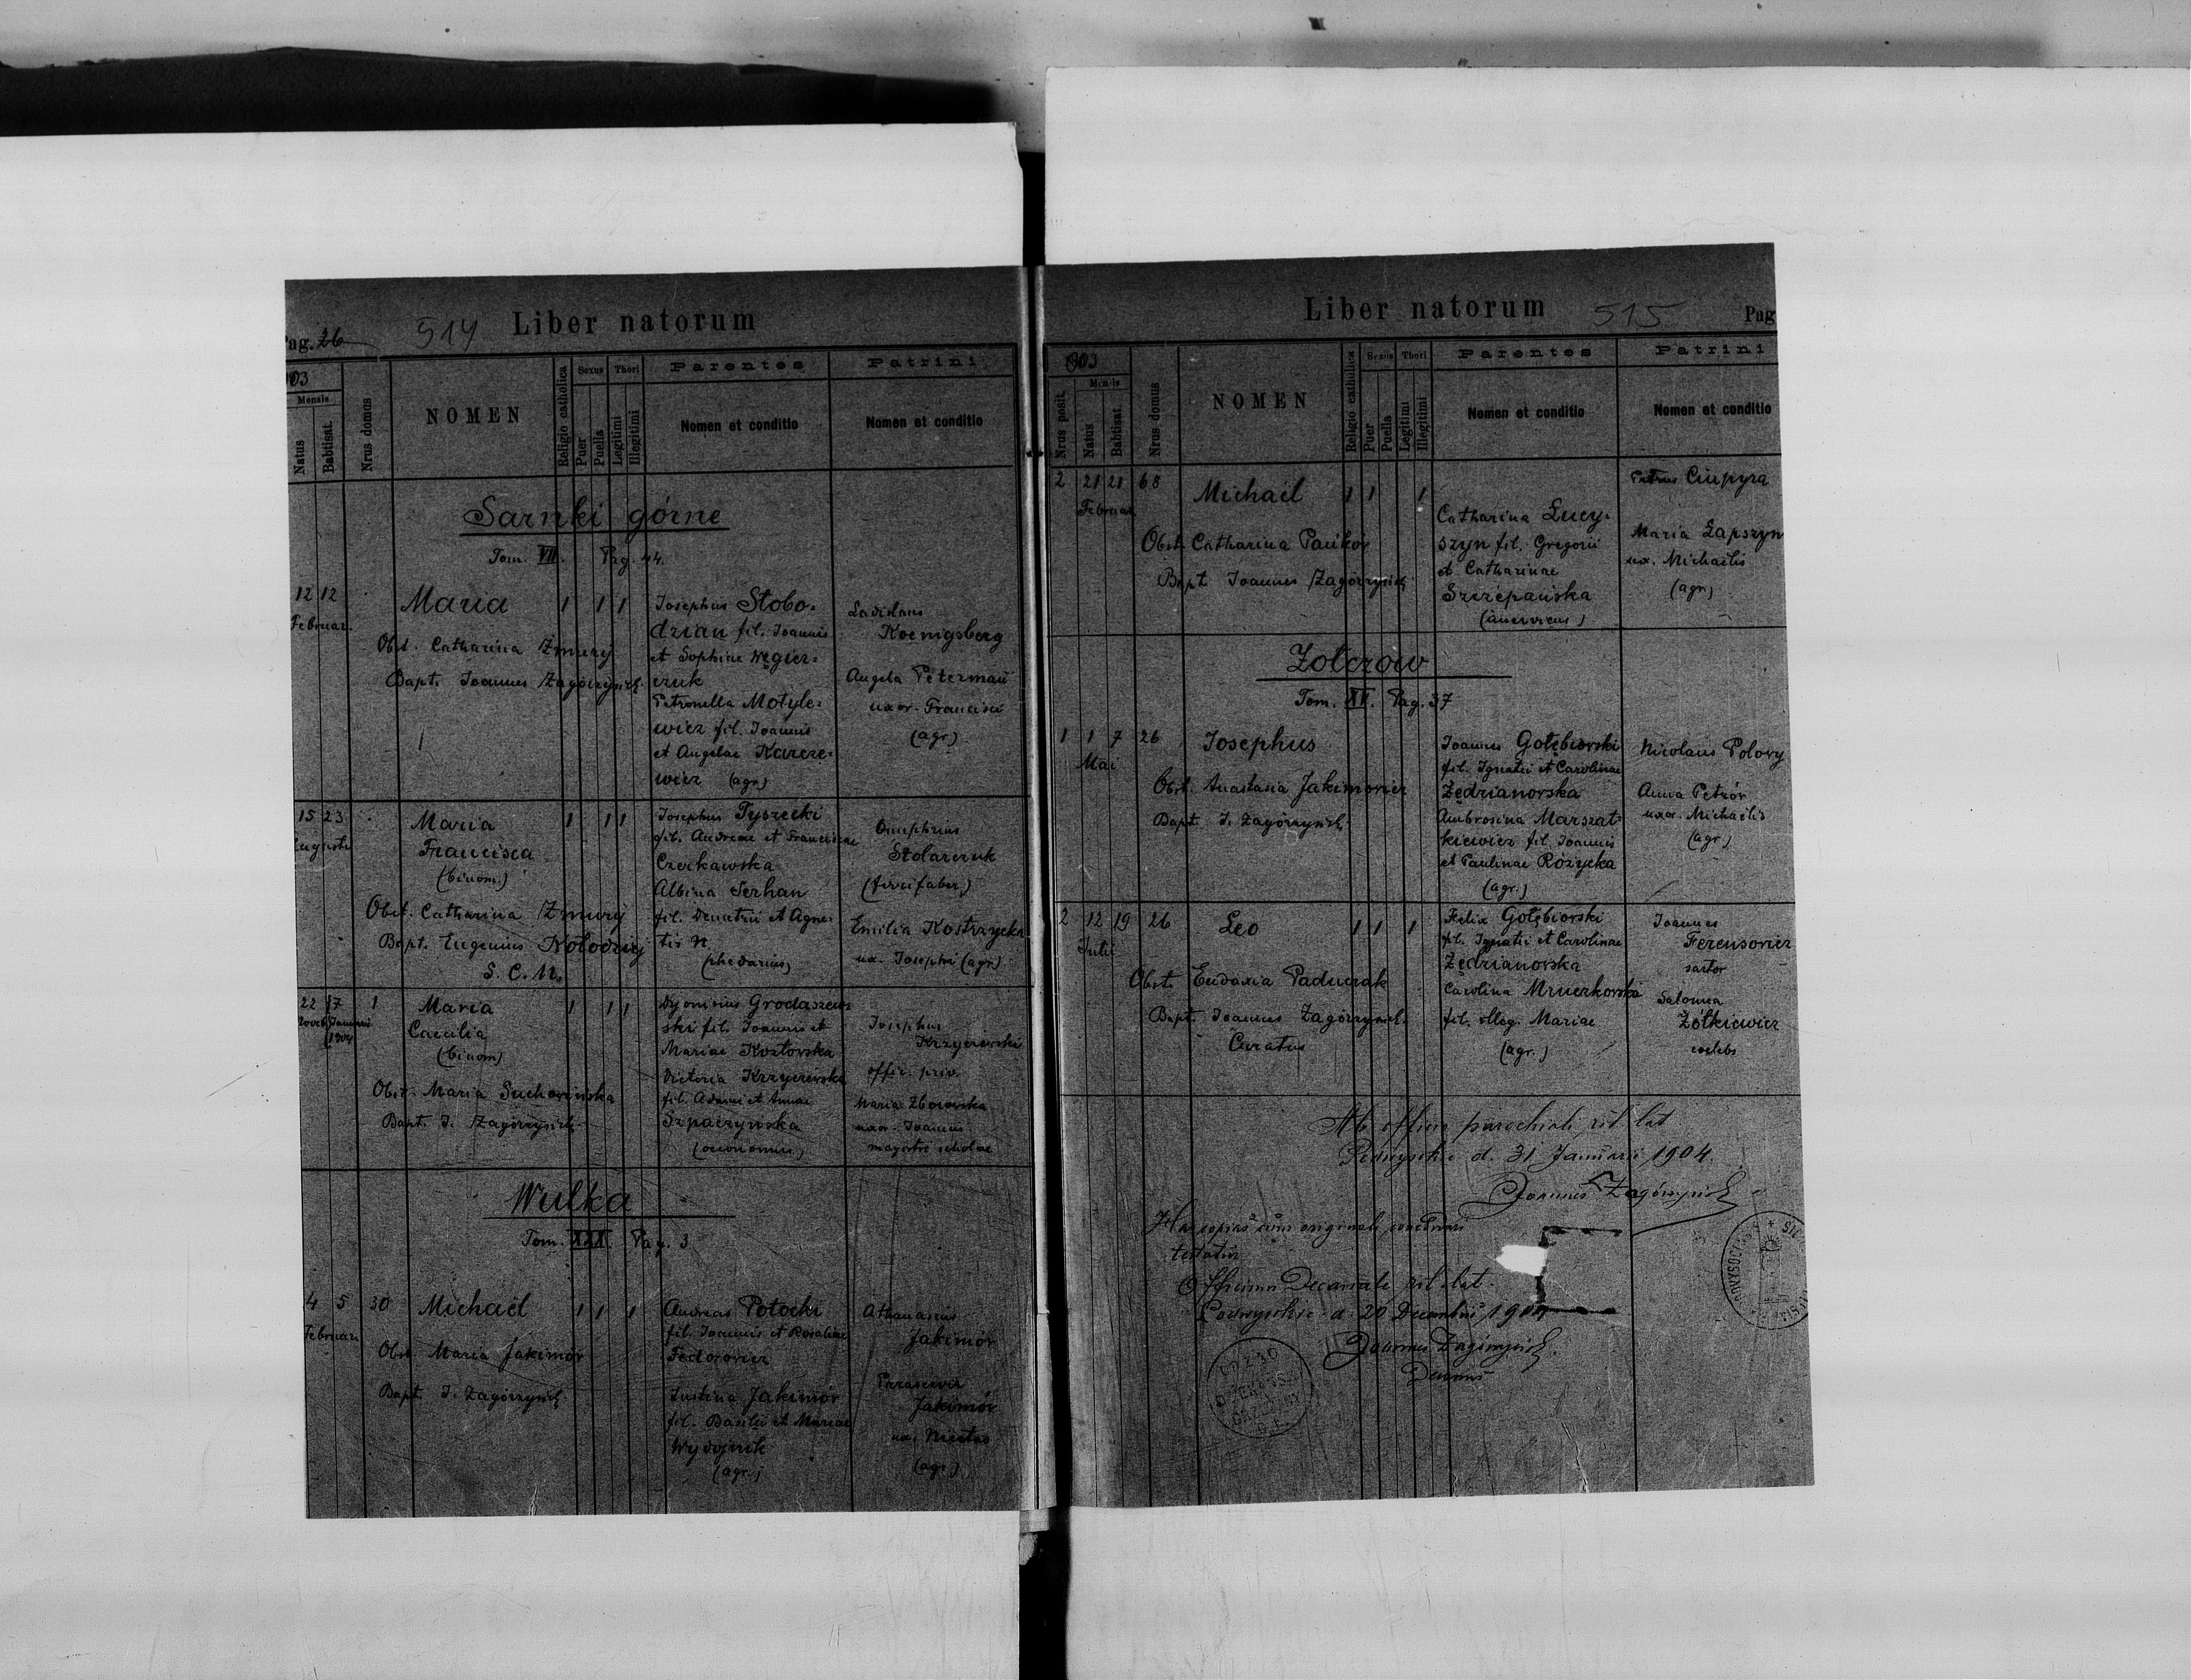 Pag. 26
514
Liber natorum
903
Mensis
Natus
Babtisat.
Nrus domus
NOMEN
Religio catholica
Sexus
Puer
Puella
Thori
Legitimi
Illegitimi
Parentes
Nomen et conditio
Patrini
Nomen et conditio
Sarnki górne
Tom. VII. Pag. 44.
12 12
Februar.
Maria
1 1 1
Obst. Catharina Zmurij
Bapt. Joannes Zagórzynski
Josephus Słobo-
dzian fil. Joannis
et Sophiae Węgier-
czuk
Petronella Motyle-
wicz fil. Joannis
et Angelae Karcze-
wicz (agr)
Ladislaus
Koenigsberg
Angela Peterman
uxor. Francisci
(agr)
15 23
Augusti
Maria
Francisca
(binom.)
1 1 1
Obst. Catharina Zmurij
Bapt. Eugenius Kołodziej
S. C. M.
Josephus Tyszecki
fil. Andreae et Franciscae
Czerkawska
Albina Serhan
fil. Demetrii et Agne-
tis N.
(phedarius)
Onuphrius
Stolarczuk
(ferrifaber)
Emilia Kostrzycka
ux. Josephi (agr)
22 17
Novemb. Januarii
1904
1
Maria
Caecilia
(binom)
1 1 1
Obst. Maria Suchowińska
Bapt. J. Zagórzynski
Dyonisius Grodaszew-
ski fil. Joannis et
Mariae Kozłowska
Victoria Krzyczewska
fil. Adami et Annae
Szpaczyńska
(oeconomus)
Josephus
Krzyczewski
offic. priv.
Maria Zborowska
uxor. Joannis
magistri scholae
Wulka
Tom. XXX. Pag. 3
4 5
Februar
30
Michaël
1 1 1
Obst. Maria Jakimów
Bapt. J. Zagórzynski
Andreas Potocki
fil. Joannis et Rosaliae
Fedorowicz
Justina Jakimów
fil. Basilii et Mariae
Wydojnik
(agr.)
Athanasius
Jakimów
Parascevia
Jakimów
ux. Nicetae
(agr)
Liber natorum
515
Pag
1903
Mensis
Nrus posit.
Natus
Babtisat.
Nrus domus
NOMEN
Religio catholica
Sexus
Puer
Puella
Thori
Legitimi
Illegitimi
Parentes
Nomen et conditio
Patrini
Nomen et conditio
2 21 21 68
Februar
Michaël
1 1 1
Obst. Catharina Pańków
Bapt Joannes Zagórzynski
Catharina Łucy-
szyn fil. Gregorii
et Catharinae
Szczepańska
Petrus Ciupyra
Maria Łapszyn
ux. Michaëlis
(agr)
Zołczow
Tom. XV. Pag. 37
1 1 7 26
Mai
Josephus
Obst. Anastasia Jakimowicz
Bapt. J. Zagórzynski
Joannes Gołębiowski
fil. Ignatii et Carolinae
Zędzianowska
Ambrosina Marszał-
kiewicz fil. Joannis
et Paulinae Różycka
(agr.)
Nicolaus Polowy
Anna Petrów
uxor. Michaëlis
(agr)
2 12 19 26
Julii
Leo
1 1 1
Obst. Eudoxia Paduczak
Bapt. Joannes Zagórzynski
Curatus
Felix Gołębiowski
fil. Ignatii et Carolinae
Zędzianowska
Carolina Mruczkowska
fil. illeg. Mariae
(agr.)
Joannes
Ferensowicz
sartor
Salomea
Żółkiewicz
coelebs
Ab officio parochiali rit. lat
Podwysokie d. 31 Januarii 1904.
Joannes Zagórzynski
Hanc copiam cum originali concordare
testatur
Officium Decanale rit. lat.
Podwysokie d. 20 Decembris 1904
Joannes Zagórzynski
Decanus